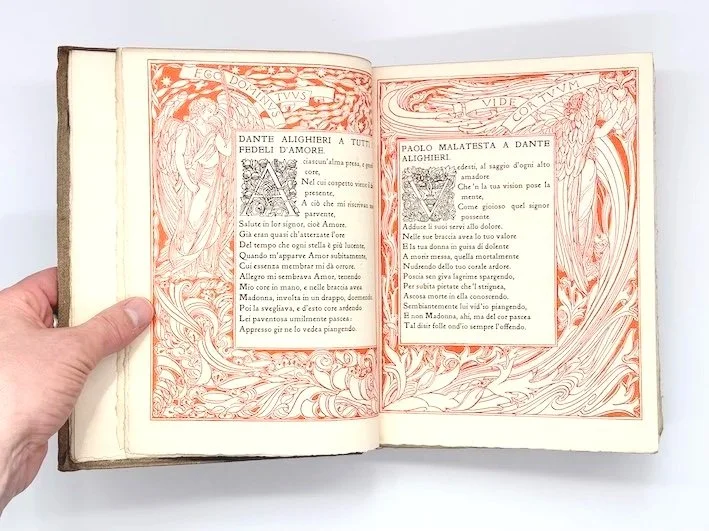 EGO DOMINUS TUUS
DANTE ALIGHIERI A TUTTI
FEDELI D'AMORE.
A ciascun'alma presa, e gentil
core,
Nel cui cospetto viene il
presente,
A ciò che mi riscrivan
parvente,
Salute in lor signor, cioè Amore.
Già eran quasi ch'atterzate l'ore
Del tempo che ogni stella è più lucente,
Quando m'apparve Amor subitamente,
Cui essenza membrar mi dà orrore.
Allegro mi sembrava Amor, tenendo
Mio core in mano, e nelle braccia avea
Madonna, involta in un drappo, dormendo.
Poi la svegliava, e d'esto core ardendo
Lei paventosa umilmente pascea:
Appresso gir ne lo vedea piangendo.
VIDE COR TUUM
PAOLO MALATESTA A DANTE
ALIGHIERI.
Vedesti, al saggio d'ogni alto
amadore
Che 'n la tua vision pose la
mente,
Come gioioso quel signor
possente
Adduce li suoi servi allo dolore.
Nelle sue braccia avea lo tuo valore
E la tua donna in guisa di dolente
A morir messa, quella mortalmente
Nudrendo dello tuo corale ardore.
Poscia sen giva lagrime spargendo,
Per subita pietate che 'l strignea,
Ascosa morte in ella conoscendo,
Sembiantemente lui vid'io piangendo,
E non Madonna, ahi, ma del cor pascea
Tal disir folle ond'io sempre l'offendo.